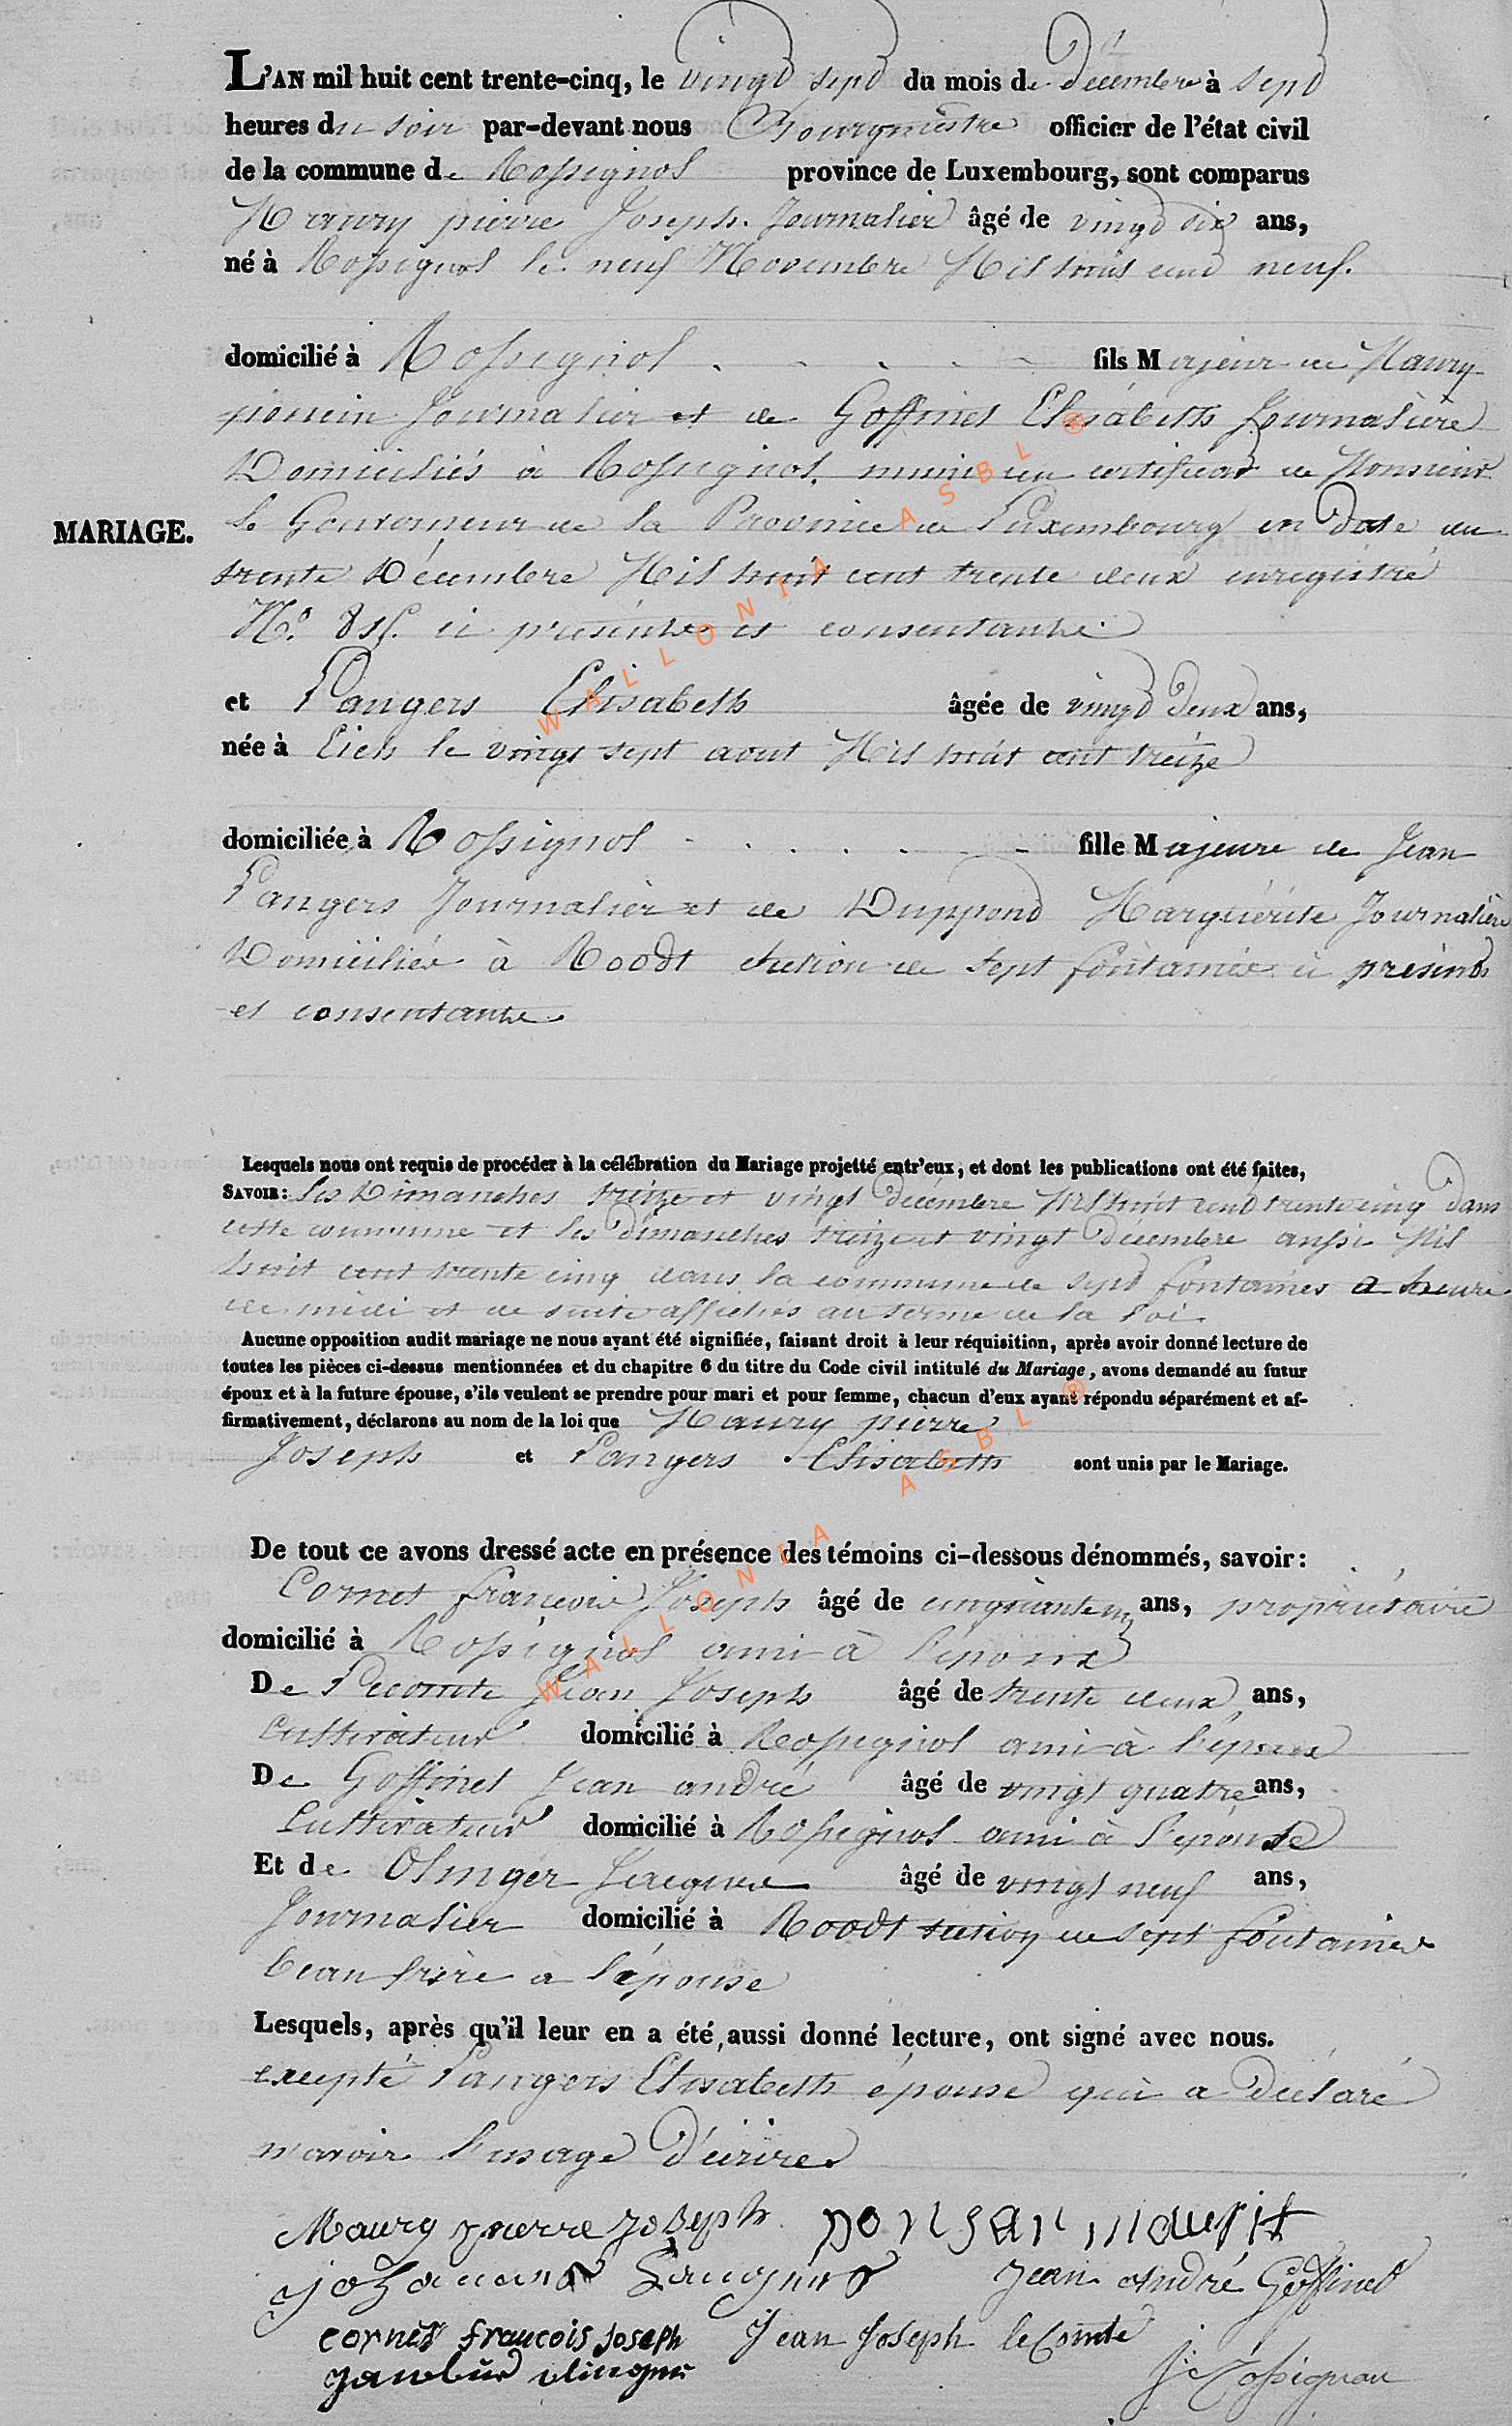 L'AN mil huit cent trente-cinq, le vingt sept du mois de décembre à sept
heures du soir par-devant nous Bourgmestre officier de l'état civil
de la commune de Rossignol province de Luxembourg, sont comparus
Maury pierre Joseph. Journalier âgé de vingt six ans,
né à Rossignol le neuf Novembre Mil huit cent neuf.
domicilié à Rossignol fils Majeur de Maury
Journalier et de Goffinet Elisabeth Journalière
Domiciliés à Rossignol, muni un certificat de Monsieur
MARIAGE.
le Gouverneur de la Province de Luxembourg en date du
trente Décembre Mil huit cent trente deux enregistré
N.° ici présente et consentante
et Pangers Elisabeth âgée de vingt deux ans,
née à Eich le vingt sept aout Mil huit cent treize
domiciliée à Rossignol fille Majeure de Jean
Pangers Journalier et de Duppond Marguérite Journalière
Domiciliés à Roodt section de Sept fontaines ici présents
et consentante
Lesquels nous ont requis de procéder à la célébration du Mariage projetté entr'eux, et dont les publications ont été faites,
SAVOIR: les Dimanches treize et vingt décembre Mil huit cent trente cinq dans
cette commune et les dimanches treize et vingt décembre aussi Mil
huit cent trente cinq dans la commune de Sept fontaines a heure
de midi et de suite affichés au terme de la loi
Aucune opposition audit mariage ne nous ayant été signifiée, faisant droit à leur réquisition, après avoir donné lecture de
toutes les pièces ci-dessus mentionnées et du chapitre 6 du titre du Code civil intitulé du Mariage, avons demandé au futur
époux et à la future épouse, s'ils veulent se prendre pour mari et pour femme, chacun d'eux ayant répondu séparément et af-
firmativement, déclarons au nom de la loi que Maury pierre
Joseph et Pangers Elisabeth sont unis par le Mariage.
De tout ce avons dressé acte en présence des témoins ci-dessous dénommés, savoir:
Cornet françois Joseph âgé de cinquante un ans, propriétaire
domicilié à Rossignol ami à l'époux
De Lecomte Jean Joseph âgé de trente deux ans,
Cultivateur domicilié à Rossignol ami à l'époux
De Goffinet Jean andré âgé de vingt quatre ans,
Cultivateur domicilié à Rossignol ami à l'épouse
Et de Olinger Jacques âgé de vingt neuf ans,
Journalier domicilié à Roodt section de Sept fontaines
beau frère a l'épouse
Lesquels, après qu'il leur en a été aussi donné lecture, ont signé avec nous.
excepté Pangers Elisabeth épouse qui a déclaré
n'avoir l'usage d'écrire
Maury pierre joseph
Jean André Goffinet
cornet francois joseph Jean Joseph leComte
olinger J: Rossignon
WALLONIA ASBL ®
WALLONIA ASBL ®